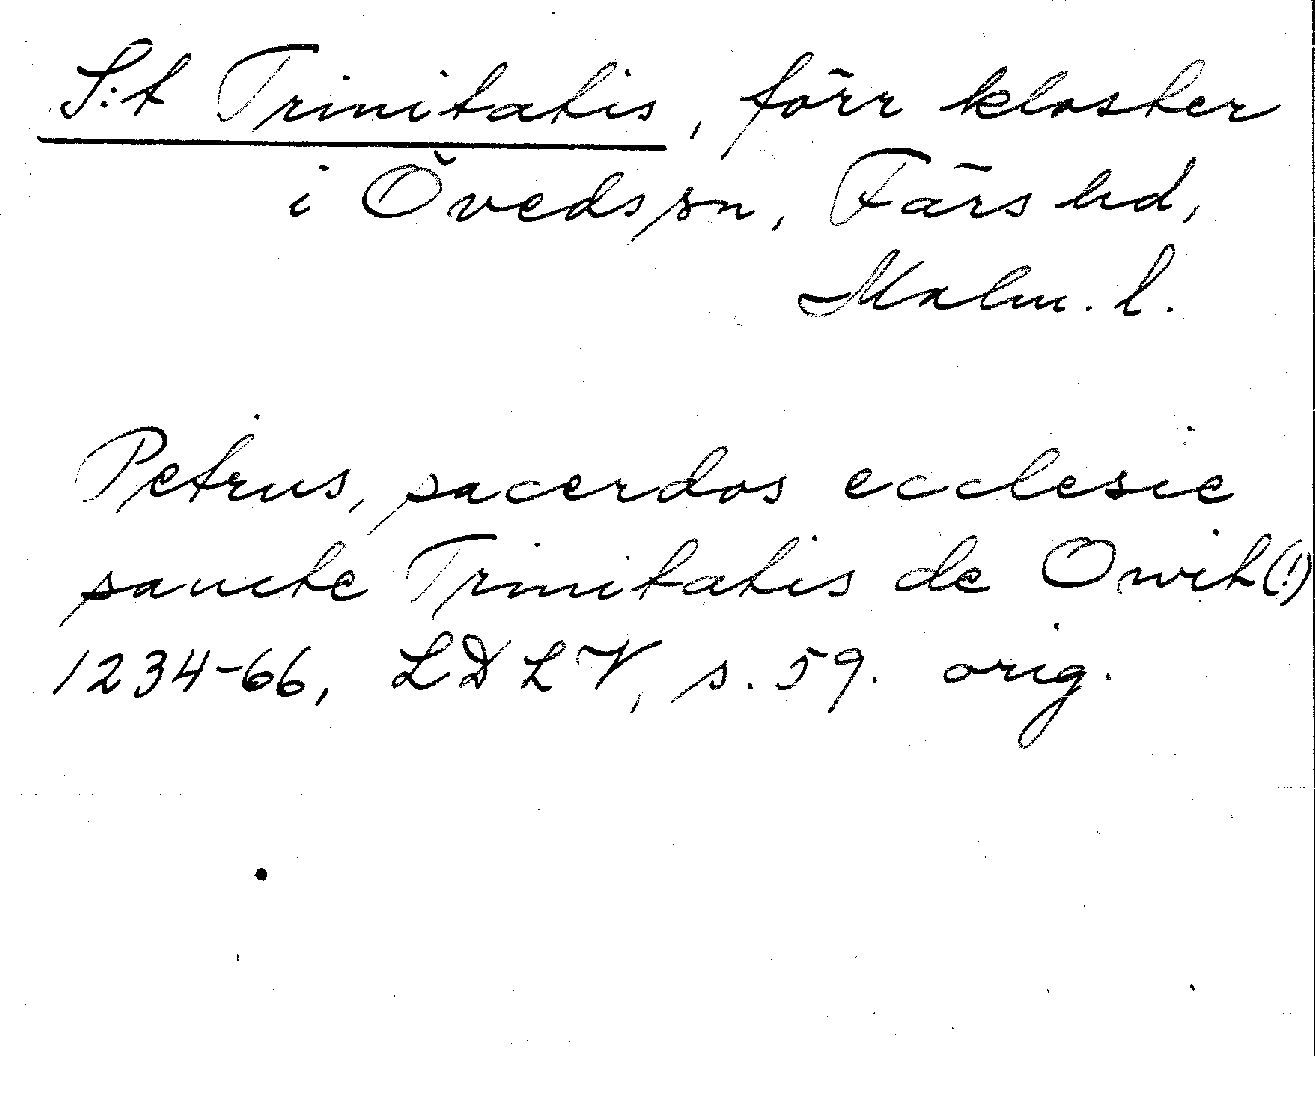 S:t Trinitatis, förr kloster
i Öveds sn, Färs hd,
Malm. l.
Petrus, sacerdos ecclesie
sancte Trinitatis de Owit(!)
1234-66, LDLV, s. 59. orig.